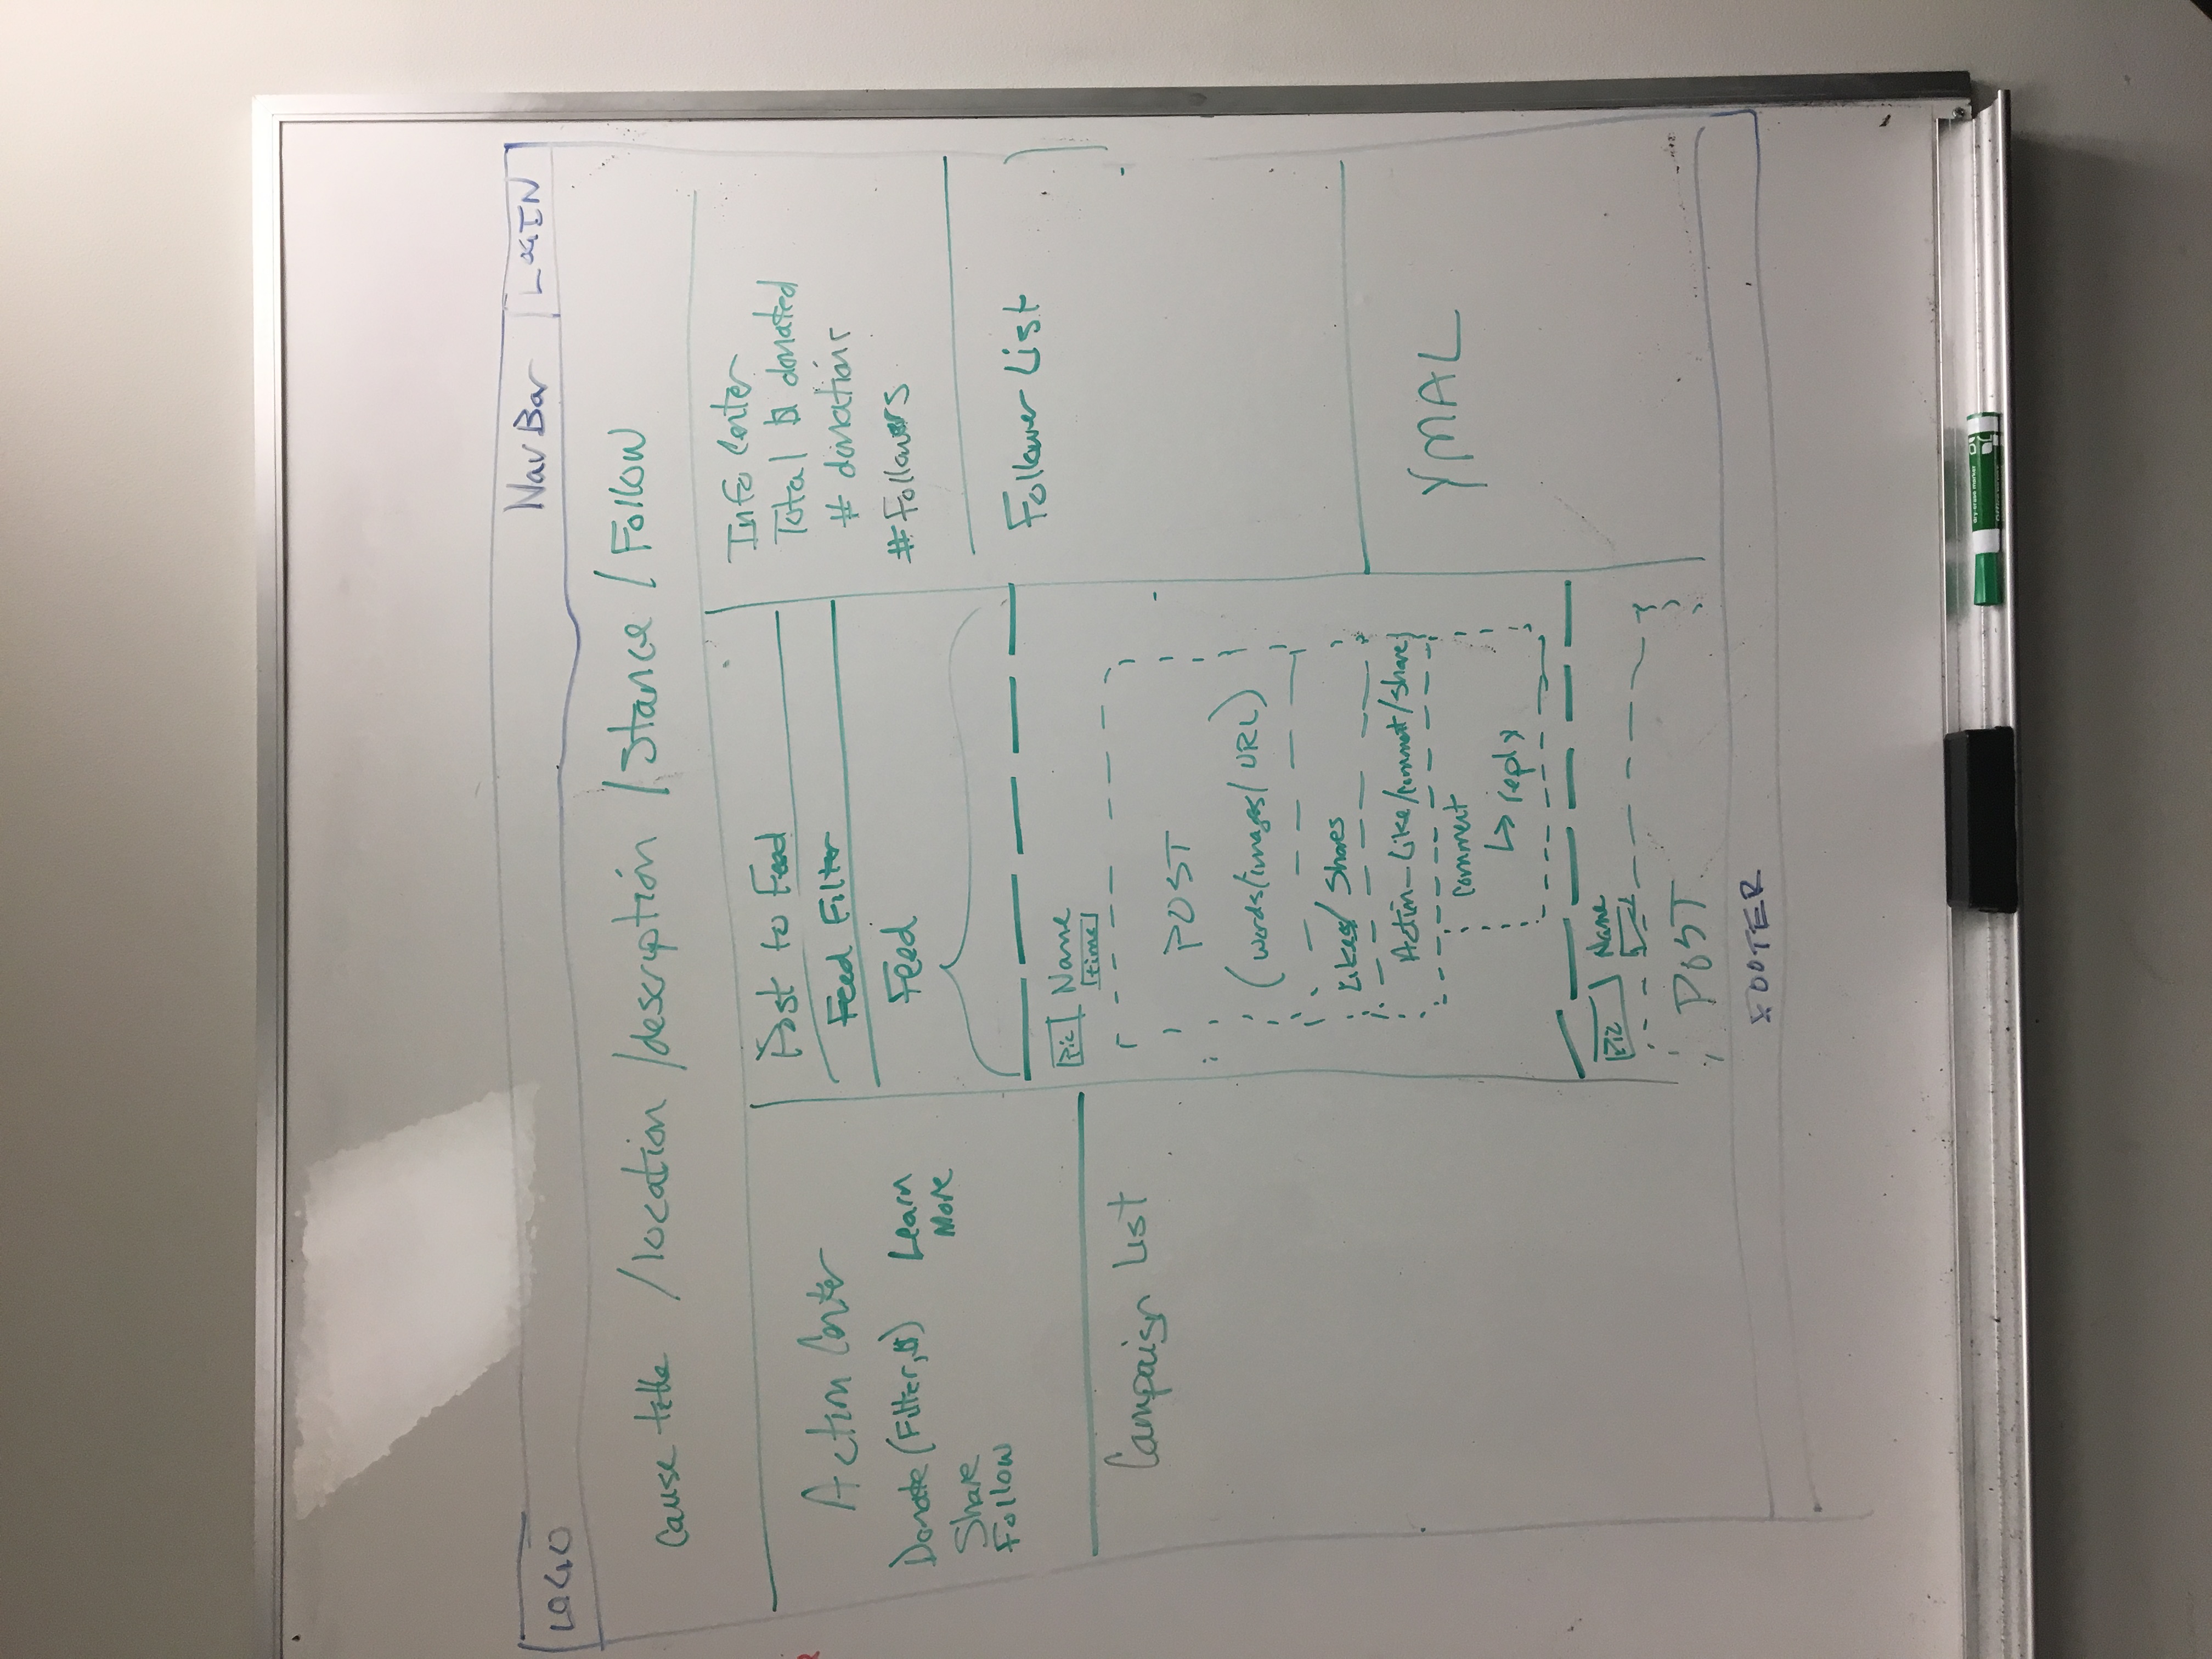 LOGO
Nav Bar
LOGIN
cause title / location / description / Stance / Follow
Action Center
Donate (Filter, $)
Learn
More
Share
Follow
Campaign List
Post to Feed
Feed Filter
Feed
Pic
Name
time
POST
(words/images/ URL)
Likes/ Shares
Action - Like/comment/share
comment
↳ reply
Pic
Name
POST
Info Center
Total $ donated
# donations
# Followers
Follower List
YMAL
FOOTER
dry-erase marker